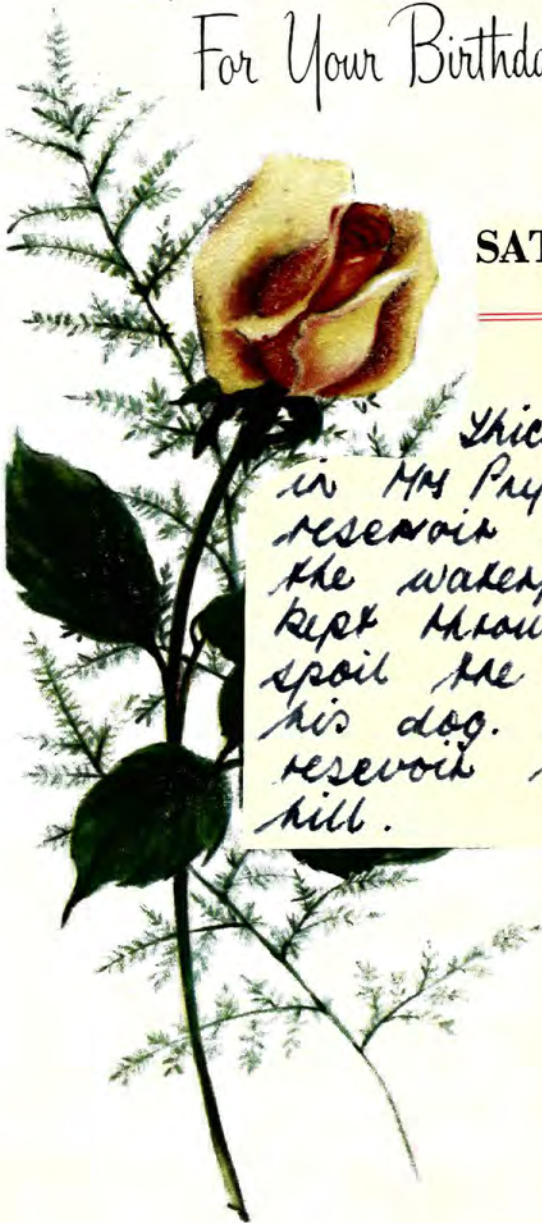 For Your Birthda
SAT
in Mrs Pry
reservoir
the water
kept throu
spoil the
his dog.
resevoir
hill.